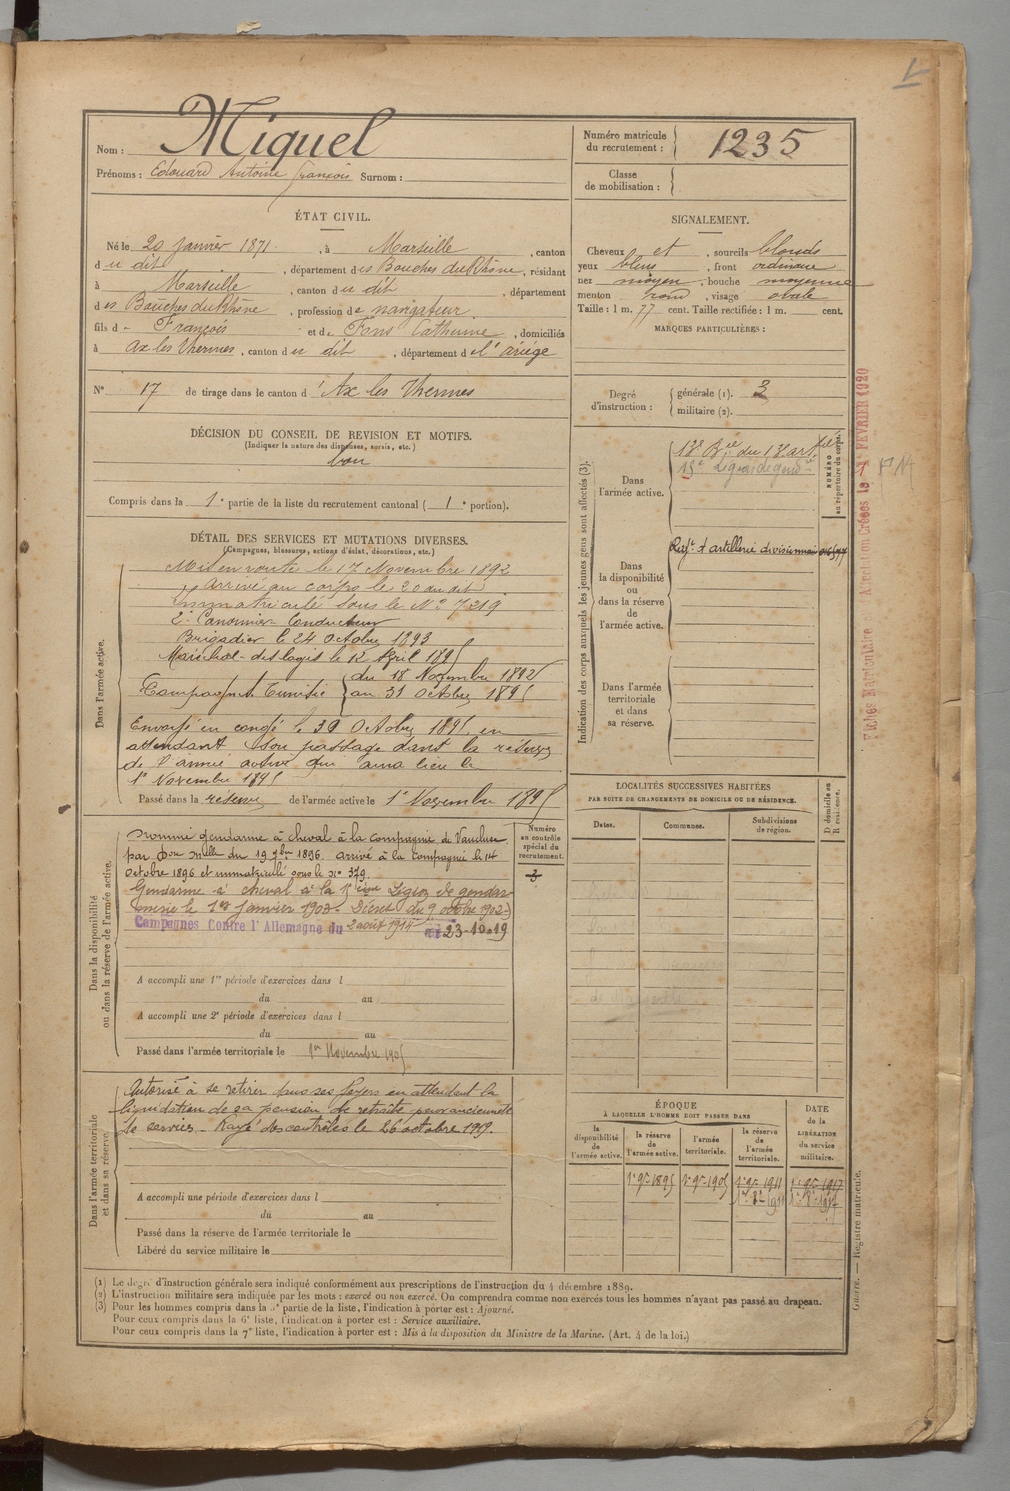 Nom : Miquel
Prénoms : Edouard Antoine françois Surnom :
Numéro matricule du recrutement : 1235
Classe de mobilisation :
ÉTAT CIVIL.
Né le 20 Janvier 1871, à Marseille, canton
du dit, département des Bouches du Rhône, résidant
à Marseille, canton du dit, département
des Bouches du Rhône, profession de navigateur
fils de François et de Fons Catherine, domiciliés
à Ax les Thermes, canton du dit, département de l'ariège
N° 17 de tirage dans le canton d'Ax les Thermes
DÉCISION DU CONSEIL DE REVISION ET MOTIFS.
(Indiquer la nature des dispenses, sursis, etc.)
bon
Compris dans la 1e partie de la liste du recrutement cantonal (1e portion).
SIGNALEMENT.
Cheveux et, sourcils blonds
yeux bleus, front ordinaire
nez moyen, bouche moyenne
menton rond, visage ovale
Taille : 1 m. 77 cent. Taille rectifiée : 1 m. cent.
MARQUES PARTICULIÈRES :
Degré d'instruction : générale (1). 3
militaire (2).
DÉTAIL DES SERVICES ET MUTATIONS DIVERSES.
(Campagnes, blessures, actions d'éclat, décorations, etc.)
Dans l'armée active.
Mis en route le 17 Novembre 1892
arrivé au corps le 20 du dit
immatriculé sous le N° 7219
2e Canonnier Conducteur
Brigadier le 24 Octobre 1893
Maréchal-des logis le 12 Avril 1895
Campagnes Tunisie du 18 Novembre 1892
au 31 Octobre 1895
Envoyé en congé le 30 Octobre 1895 en
attendant son passage dans la réserve
de l'armée active qui aura lieu le
1e Novembre 1895
Passé dans la réserve de l'armée active le 1e Novembre 1895
Indication des corps auxquels les jeunes gens sont affectés (3).
Dans l'armée active.
NUMÉRO au répertoire du corps.
Dans la disponibilité ou dans la réserve de l'armée active.
Regt d'artillerie divisionnaire
Dans l'armée territoriale et dans sa réserve.
Fiches Matriculaire & Affectation Créées le 1er FEVRIER 1920
Dans la disponibilité ou dans la réserve de l'armée active.
Nommé gendarme à cheval à la compagnie de Vaucluse
par Don Mlle du 19 7bre 1896 arrivé à la compagnie le 14
Octobre 1896 et immatriculé sous le n° 379.
Gendarme à cheval à la Légion de gendar
merie le 1er Janvier 1903. Décret du 9 octobre 1902
Campagnes Contre l'Allemagne du 2 août 1914 au 23-10-19
Numéro au contrôle spécial du recrutement.
3
A accompli une 1re période d'exercices dans l
du au
A accompli une 2e période d'exercices dans l
du au
Passé dans l'armée territoriale le 1er Novembre 1905
LOCALITÉS SUCCESSIVES HABITÉES
PAR SUITE DE CHANGEMENTS DE DOMICILE OU DE RÉSIDENCE.
Dates. Communes. Subdivisions de région. D domicile ou R résidence.
Dans l'armée territoriale et dans sa réserve.
Autorisé à se retirer dans ses foyers en attendant la
liquidation de sa pension de retraite pour ancienneté
de services - Rayé des contrôles le 26 octobre 1919.
A accompli une période d'exercices dans l
du au
Passé dans la réserve de l'armée territoriale le
Libéré du service militaire le
ÉPOQUE
À LAQUELLE L'HOMME DOIT PASSER DANS
DATE de la LIBÉRATION du service militaire.
la disponibilité de l'armée active. la réserve de l'armée active. l'armée territoriale. la réserve de l'armée territoriale.
1e 9bre 1895 1e 9bre 1905 1e 9bre 1911 1e 9bre 1917
(1) Le degré d'instruction générale sera indiqué conformément aux prescriptions de l'instruction du 4 décembre 1889.
(2) L'instruction militaire sera indiquée par les mots : exercé ou non exercé. On comprendra comme non exercés tous les hommes n'ayant pas passé au drapeau.
(3) Pour les hommes compris dans la 5e partie de la liste, l'indication à porter est : Ajourné.
Pour ceux compris dans la 6e liste, l'indication à porter est : Service auxiliaire.
Pour ceux compris dans la 7e liste, l'indication à porter est : Mis à la disposition du Ministre de la Marine. (Art. 4 de la loi.)
Guerre. — Registre matricule.